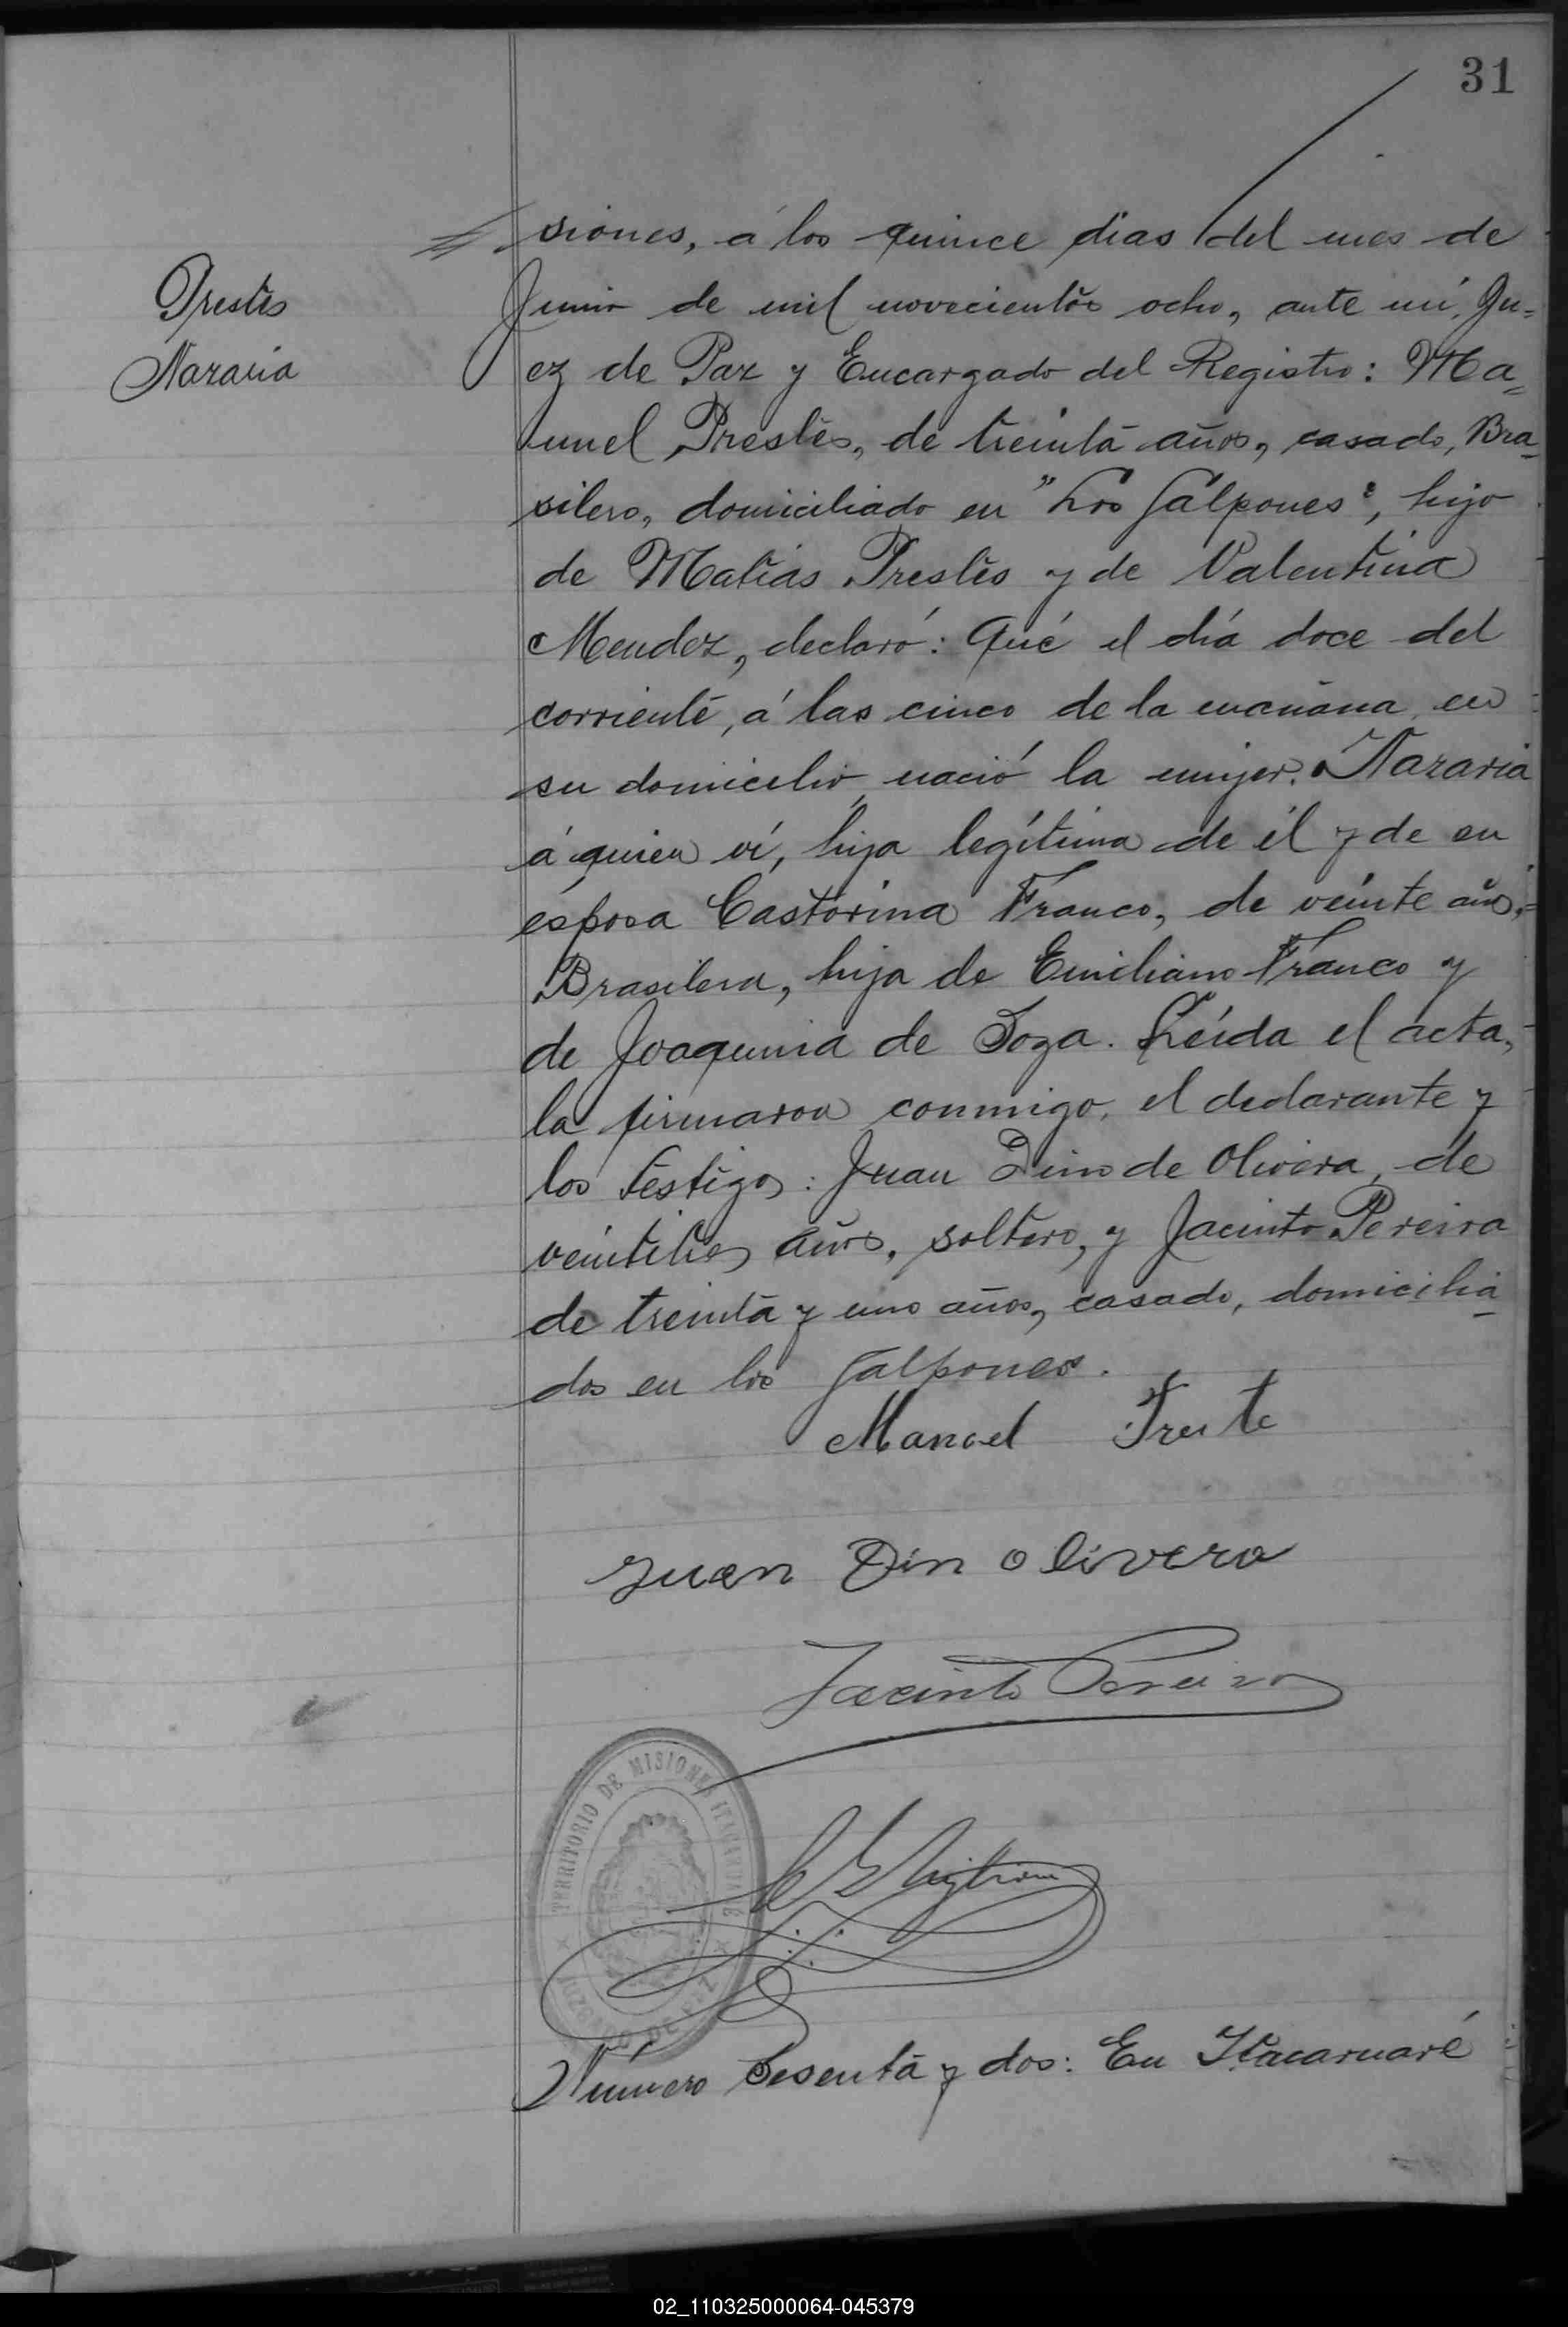 31
siones, á los quince dias del mes de
Prestes
Junio de mil novecientos ocho, ante mi, Ju=
Nazaria
ez de Paz y Encargado del Registro: Ma=
nuel Prestes, de treinta años, casado, Bra-
silero, domiciliado en "Los Galpones", hijo
de Matias Prestes y de Valentina
Mendez, declaró: Qué el día doce del
corriente, á las cinco de la mañana, en
su domicilio, nació la mujer: Nazaria
á quien ví, hija legítima de él y de su
esposa Castorina Franco, de veinte años,
Brasilera, hija de Emiliano Franco y
de Joaquina de Soza. Leída el acta,
la firmaron conmigo, el declarante y
los testigos: Juan Dino de Olivera, de
veintitres años, soltero, y Jacinto Pereira
de treinta y uno años, casado, domicilia-
dos en los Galpones.
Manoel Preste
Juan Din Olivera
Jacinto Pereira
TERRITORIO DE MISIONES ITACARUARÉ
JUZGADO DE PAZ
Número Sesenta y dos: En Itacaruaré
02_110325000064-045379